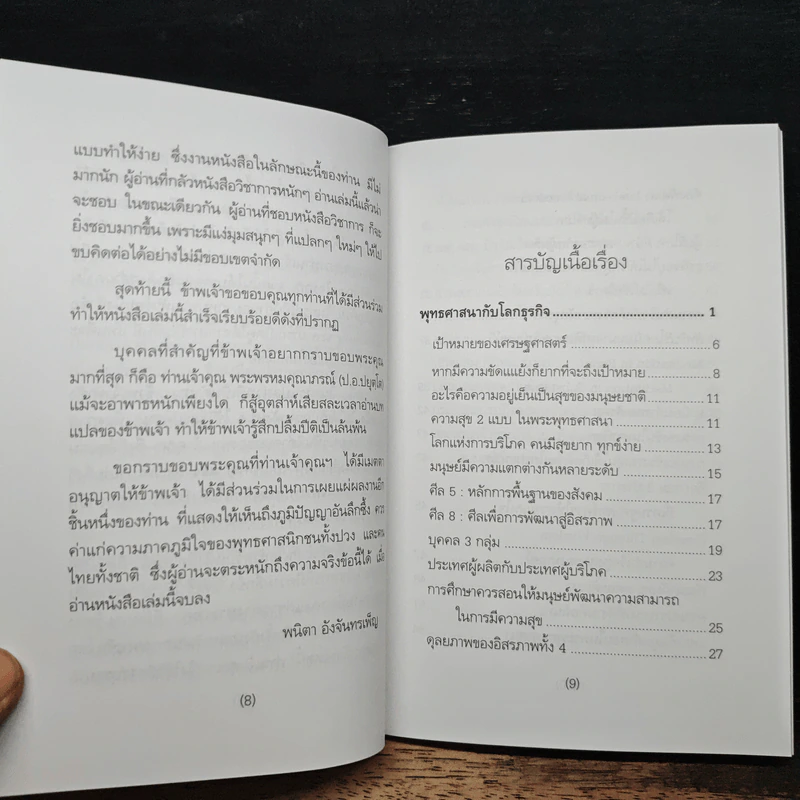 แบบทำให้ง่าย ซึ่งงานหนังสือในลักษณะนี้ของท่าน มีไม่
มากนัก ผู้อ่านที่กลัวหนังสือวิชาการหนักๆ อ่านเล่มนี้แล้วน่า
จะชอบ ในขณะเดียวกัน ผู้อ่านที่ชอบหนังสือวิชาการ ก็จะ
ยิ่งชอบมากขึ้น เพราะมีแง่มุมสนุกๆ ที่แปลกๆ ใหม่ๆ ให้ไป
ขบคิดต่อได้อย่างไม่มีขอบเขตจำกัด
สุดท้ายนี้ ข้าพเจ้าขอขอบคุณทุกท่านที่ได้มีส่วนร่วม
ทำให้หนังสือเล่มนี้สำเร็จเรียบร้อยดีดังที่ปรากฏ
บุคคลที่สำคัญที่ข้าพเจ้าอยากกราบขอบพระคุณ
มากที่สุด ก็คือ ท่านเจ้าคุณ พระพรหมคุณาภรณ์ (ป.อ.ปยุตฺโต)
แม้จะอาพาธหนักเพียงใด ก็สู้อุตส่าห์เสียสละเวลาอ่านบท
แปลของข้าพเจ้า ทำให้ข้าพเจ้ารู้สึกปลื้มปีติเป็นล้นพ้น
ขอกราบขอบพระคุณที่ท่านเจ้าคุณฯ ได้มีเมตตา
อนุญาตให้ข้าพเจ้า ได้มีส่วนร่วมในการเผยแผ่ผลงานอีก
ชิ้นหนึ่งของท่าน ที่แสดงให้เห็นถึงภูมิปัญญาอันลึกซึ้ง ควร
ค่าแก่ความภาคภูมิใจของพุทธศาสนิกชนทั้งปวง และคน
ไทยทั้งชาติ ซึ่งผู้อ่านจะตระหนักถึงความจริงข้อนี้ได้ เมื่อ
อ่านหนังสือเล่มนี้จบลง
พนิตา อังจันทรเพ็ญ
(8)
สารบัญเนื้อเรื่อง
พุทธศาสนากับโลกธุรกิจ ........ 1
เป้าหมายของเศรษฐศาสตร์ ........ 6
หากมีความขัดแแย้งก็ยากที่จะถึงเป้าหมาย ........ 8
อะไรคือความอยู่เย็นเป็นสุขของมนุษยชาติ ........ 11
ความสุข 2 แบบ ในพระพุทธศาสนา ........ 11
โลกแห่งการบริโภค คนมีสุขยาก ทุกข์ง่าย ........ 13
มนุษย์มีความแตกต่างกันหลายระดับ ........ 15
ศีล 5 : หลักการพื้นฐานของสังคม ........ 17
ศีล 8 : ศีลเพื่อการพัฒนาสู่อิสรภาพ ........ 17
บุคคล 3 กลุ่ม ........ 19
ประเทศผู้ผลิตกับประเทศผู้บริโภค ........ 23
การศึกษาควรสอนให้มนุษย์พัฒนาความสามารถ
ในการมีความสุข ........ 25
ดุลยภาพของอิสรภาพทั้ง 4 ........ 27
(9)